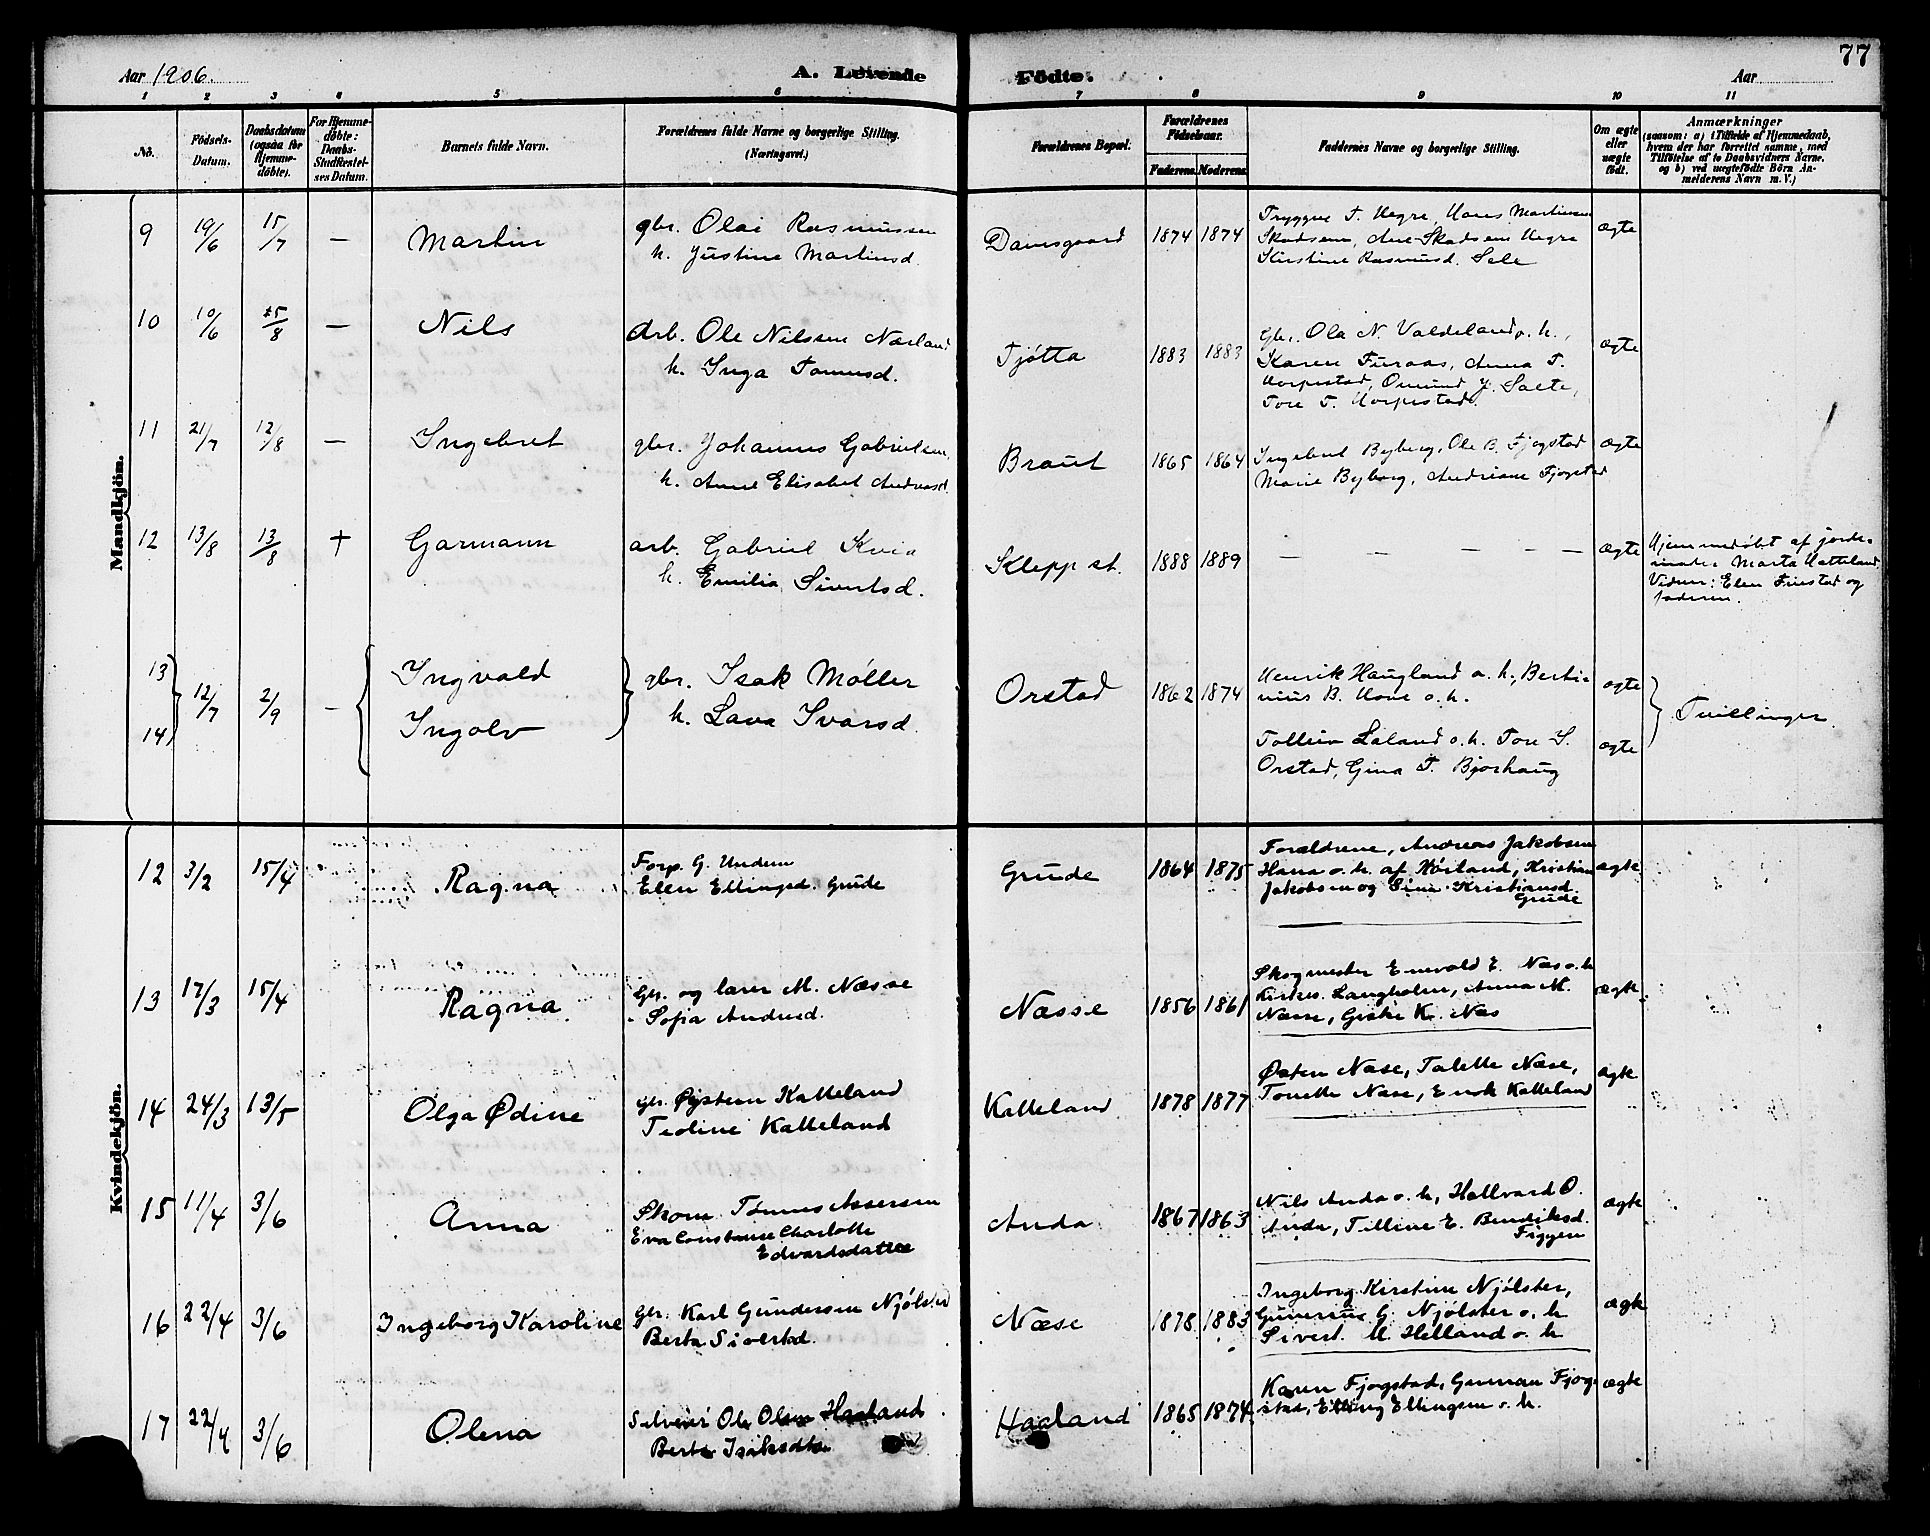 77
Aar 1906.
A. Levende Födte.
Aar
1 2 3 4 5 6 7 8 9 10 11
No.
Födsels-Datum.
Daabsdatum (ogsaa for Hjemmedöbte).
For Hjemmedöbte: Daabs-Stadfæstelses Datum.
Barnets fulde Navn.
Forældrenes fulde Navne og borgerlige Stilling. (Næringsvei.)
Forældrenes Bopæl.
Forældrenes Födselsaar.
Faderens. Moderens.
Faddernes Navne og borgerlige Stilling.
Om ægte eller uægte födt.
Anmærkninger
(saasom: a) i Tilfælde af Hjemmedaab, hvem der har forrettet samme, med Tilföielse af to Daabsvidners Navne, og b) ved uægtefödte Börn Anmelderens Navn m. V.)
Mandkjön.
9 19/6 15/7 — Martin gbr. Olai Rasmussen Damsgaard 1874 1874 Tryggve T. Hegre, Hans Martinsen ægte
h. Justine Martinsd. Skadsem, Ane Skadsem Hegre
Kirstine Rasmusd. Sele
10 10/6 15/8 — Nils Arb. Ole Nilsen Nærland Tjøtta 1883 1883 Gbr. Ola N. Valdeland o. h., ægte
h. Inga Tonnesd. Karen Furaas, Anna T.
Horpestad, Omund J. Salte,
Tore T. Horpestad.
11 21/7 12/8 — Ingebret gbr. Johannes Gabrielsen, Braut 1865 1864 Ingebret Byberg, Ole B. Fjogstad ægte
h. Anne Elisabet Andreasd. Marie Byberg, Andriane Fjogstad
12 13/8 13/8 + Garmann arb. Gabriel Kvia Klepp st. 1888 1889 — — — — — ægte Hjemmedøbt af jorde-
h. Emilia Sivertsd. moder Marta Hatteland
Vidner: Elen Fuestad og
faderen.
13 12/7 2/9 — Ingvald gbr. Isak Møller Orstad 1862 1874 Henrik Haugland o. h., Berti- ægte
nius B. Hove o. h.
14 Ingolv h. Lava Ivarsd. Tolleiv Laland o. h. Tore S. ægte Tvillinger.
Orstad, Gina T. Bjorhaug
Kvindekjön.
12 3/2 15/4 Ragna Forp. G. Undem Grude 1864 1875 Forældrene, Andreas Jakobsen ægte
Elen Ellingsd. Grude Hana o. h. af Høiland, Kristian
Jakobsen og Sine Kristiansd.
Grude
13 17/3 15/4 Ragna Gbr. og lærer M. Næsse Næsse 1856 1861 Skogmester Enevald E. Næs o. h ægte
Sofia Andresd. Kirkes. Langholm, Anna M.
Næsse, Giske K. Næs
14 24/3 13/5 Olga Ødine Gbr. Øystein Katteland Katteland 1878 1877 Østen Næse, Talette Næse, ægte
Teoline Katteland Tonette Næse, Enok Katteland
15 11/4 3/6 Anna Skom. Tønnes Assersen Anda 1867 1863 Nils Anda o. h, Hallvard O. ægte
Eva Constanse Charlotte Anda, Tilline E. Bendiksd.
Edvardsdatter Figgen
16 22/4 3/6 Ingeborg Karoline Gbr. Karl Gundersen Njølstad Næse 1878 1883 Ingeborg Kirstine Njølster, ægte
Berta Sivertsd. Gunerius G. Njølster o. h
Sivert M. Helland o. h
17 22/4 3/6 Olena Selveier Ole Olsen Haaland Haaland 1865 1874 Karen Fjogstad, Gunnar Fjog- ægte
Berta Isaksdtr. stad, Elling Ellingsen o. h.